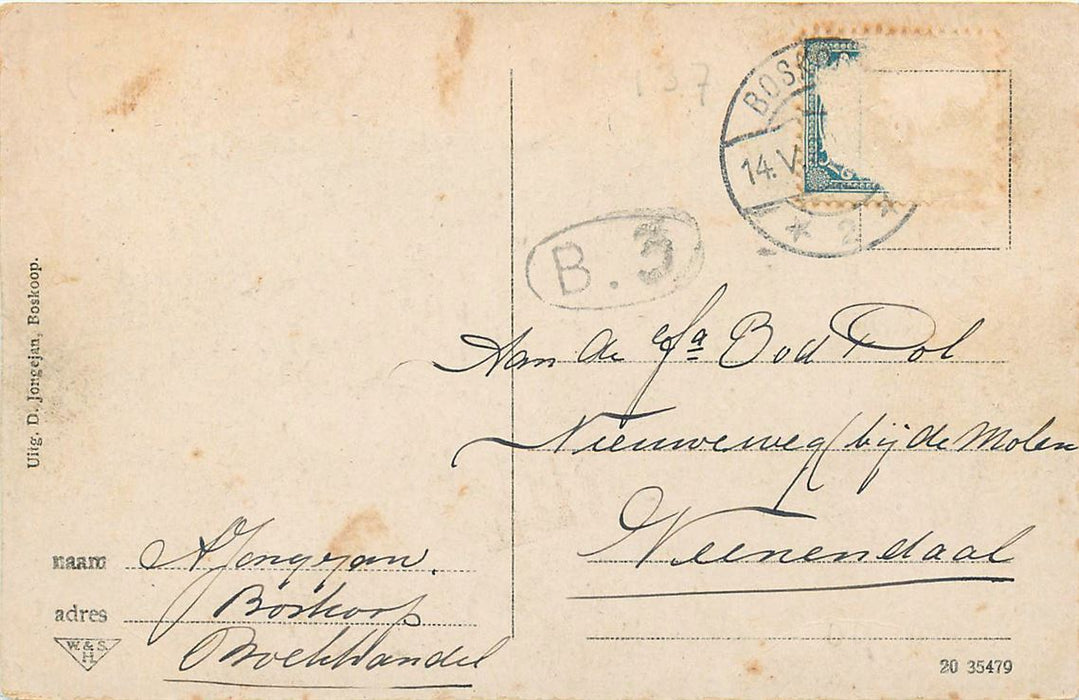 137
BOSKO
14.V
* 2 *
B.3
Aan de Fa Bod Pol
Nieuweweg (bij de Molen
Veenendaal
Uitg. D. Jongejan, Boskoop.
naam A Jongejan.
adres Boskoop
Boekhandel
W. & S.
H.
20 35479